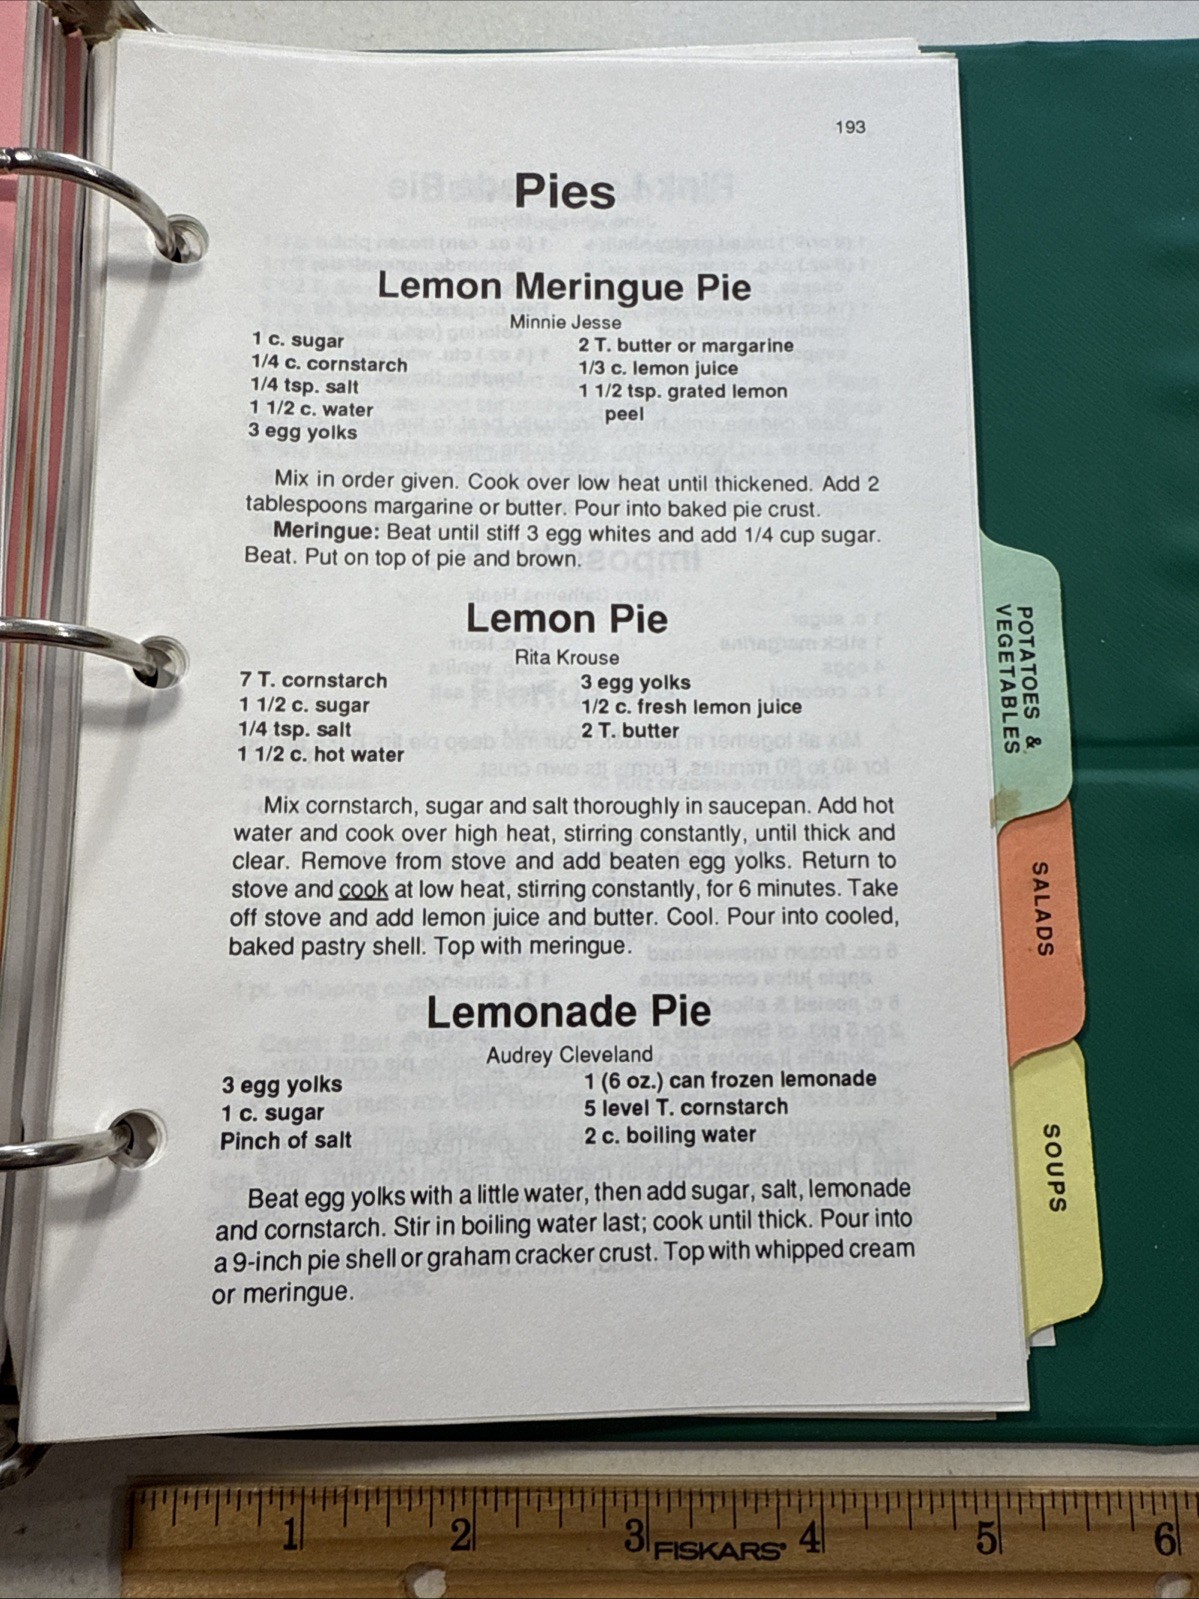 193
Pies
Lemon Meringue Pie
Minnie Jesse
1 c. sugar
1/4 c. cornstarch
1/4 tsp. salt
1 1/2 c. water
3 egg yolks
2 T. butter or margarine
1/3 c. lemon juice
1 1/2 tsp. grated lemon
peel
Mix in order given. Cook over low heat until thickened. Add 2
tablespoons margarine or butter. Pour into baked pie crust.
Meringue: Beat until stiff 3 egg whites and add 1/4 cup sugar.
Beat. Put on top of pie and brown.
Lemon Pie
Rita Krouse
7 T. cornstarch
1 1/2 c. sugar
1/4 tsp. salt
1 1/2 c. hot water
3 egg yolks
1/2 c. fresh lemon juice
2 T. butter
Mix cornstarch, sugar and salt thoroughly in saucepan. Add hot
water and cook over high heat, stirring constantly, until thick and
clear. Remove from stove and add beaten egg yolks. Return to
stove and cook at low heat, stirring constantly, for 6 minutes. Take
off stove and add lemon juice and butter. Cool. Pour into cooled,
baked pastry shell. Top with meringue.
Lemonade Pie
Audrey Cleveland
3 egg yolks
1 c. sugar
Pinch of salt
1 (6 oz.) can frozen lemonade
5 level T. cornstarch
2 c. boiling water
Beat egg yolks with a little water, then add sugar, salt, lemonade
and cornstarch. Stir in boiling water last; cook until thick. Pour into
a 9-inch pie shell or graham cracker crust. Top with whipped cream
or meringue.
POTATOES &
VEGETABLES
SALADS
SOUPS
1 2 3 FISKARS 4 5 6